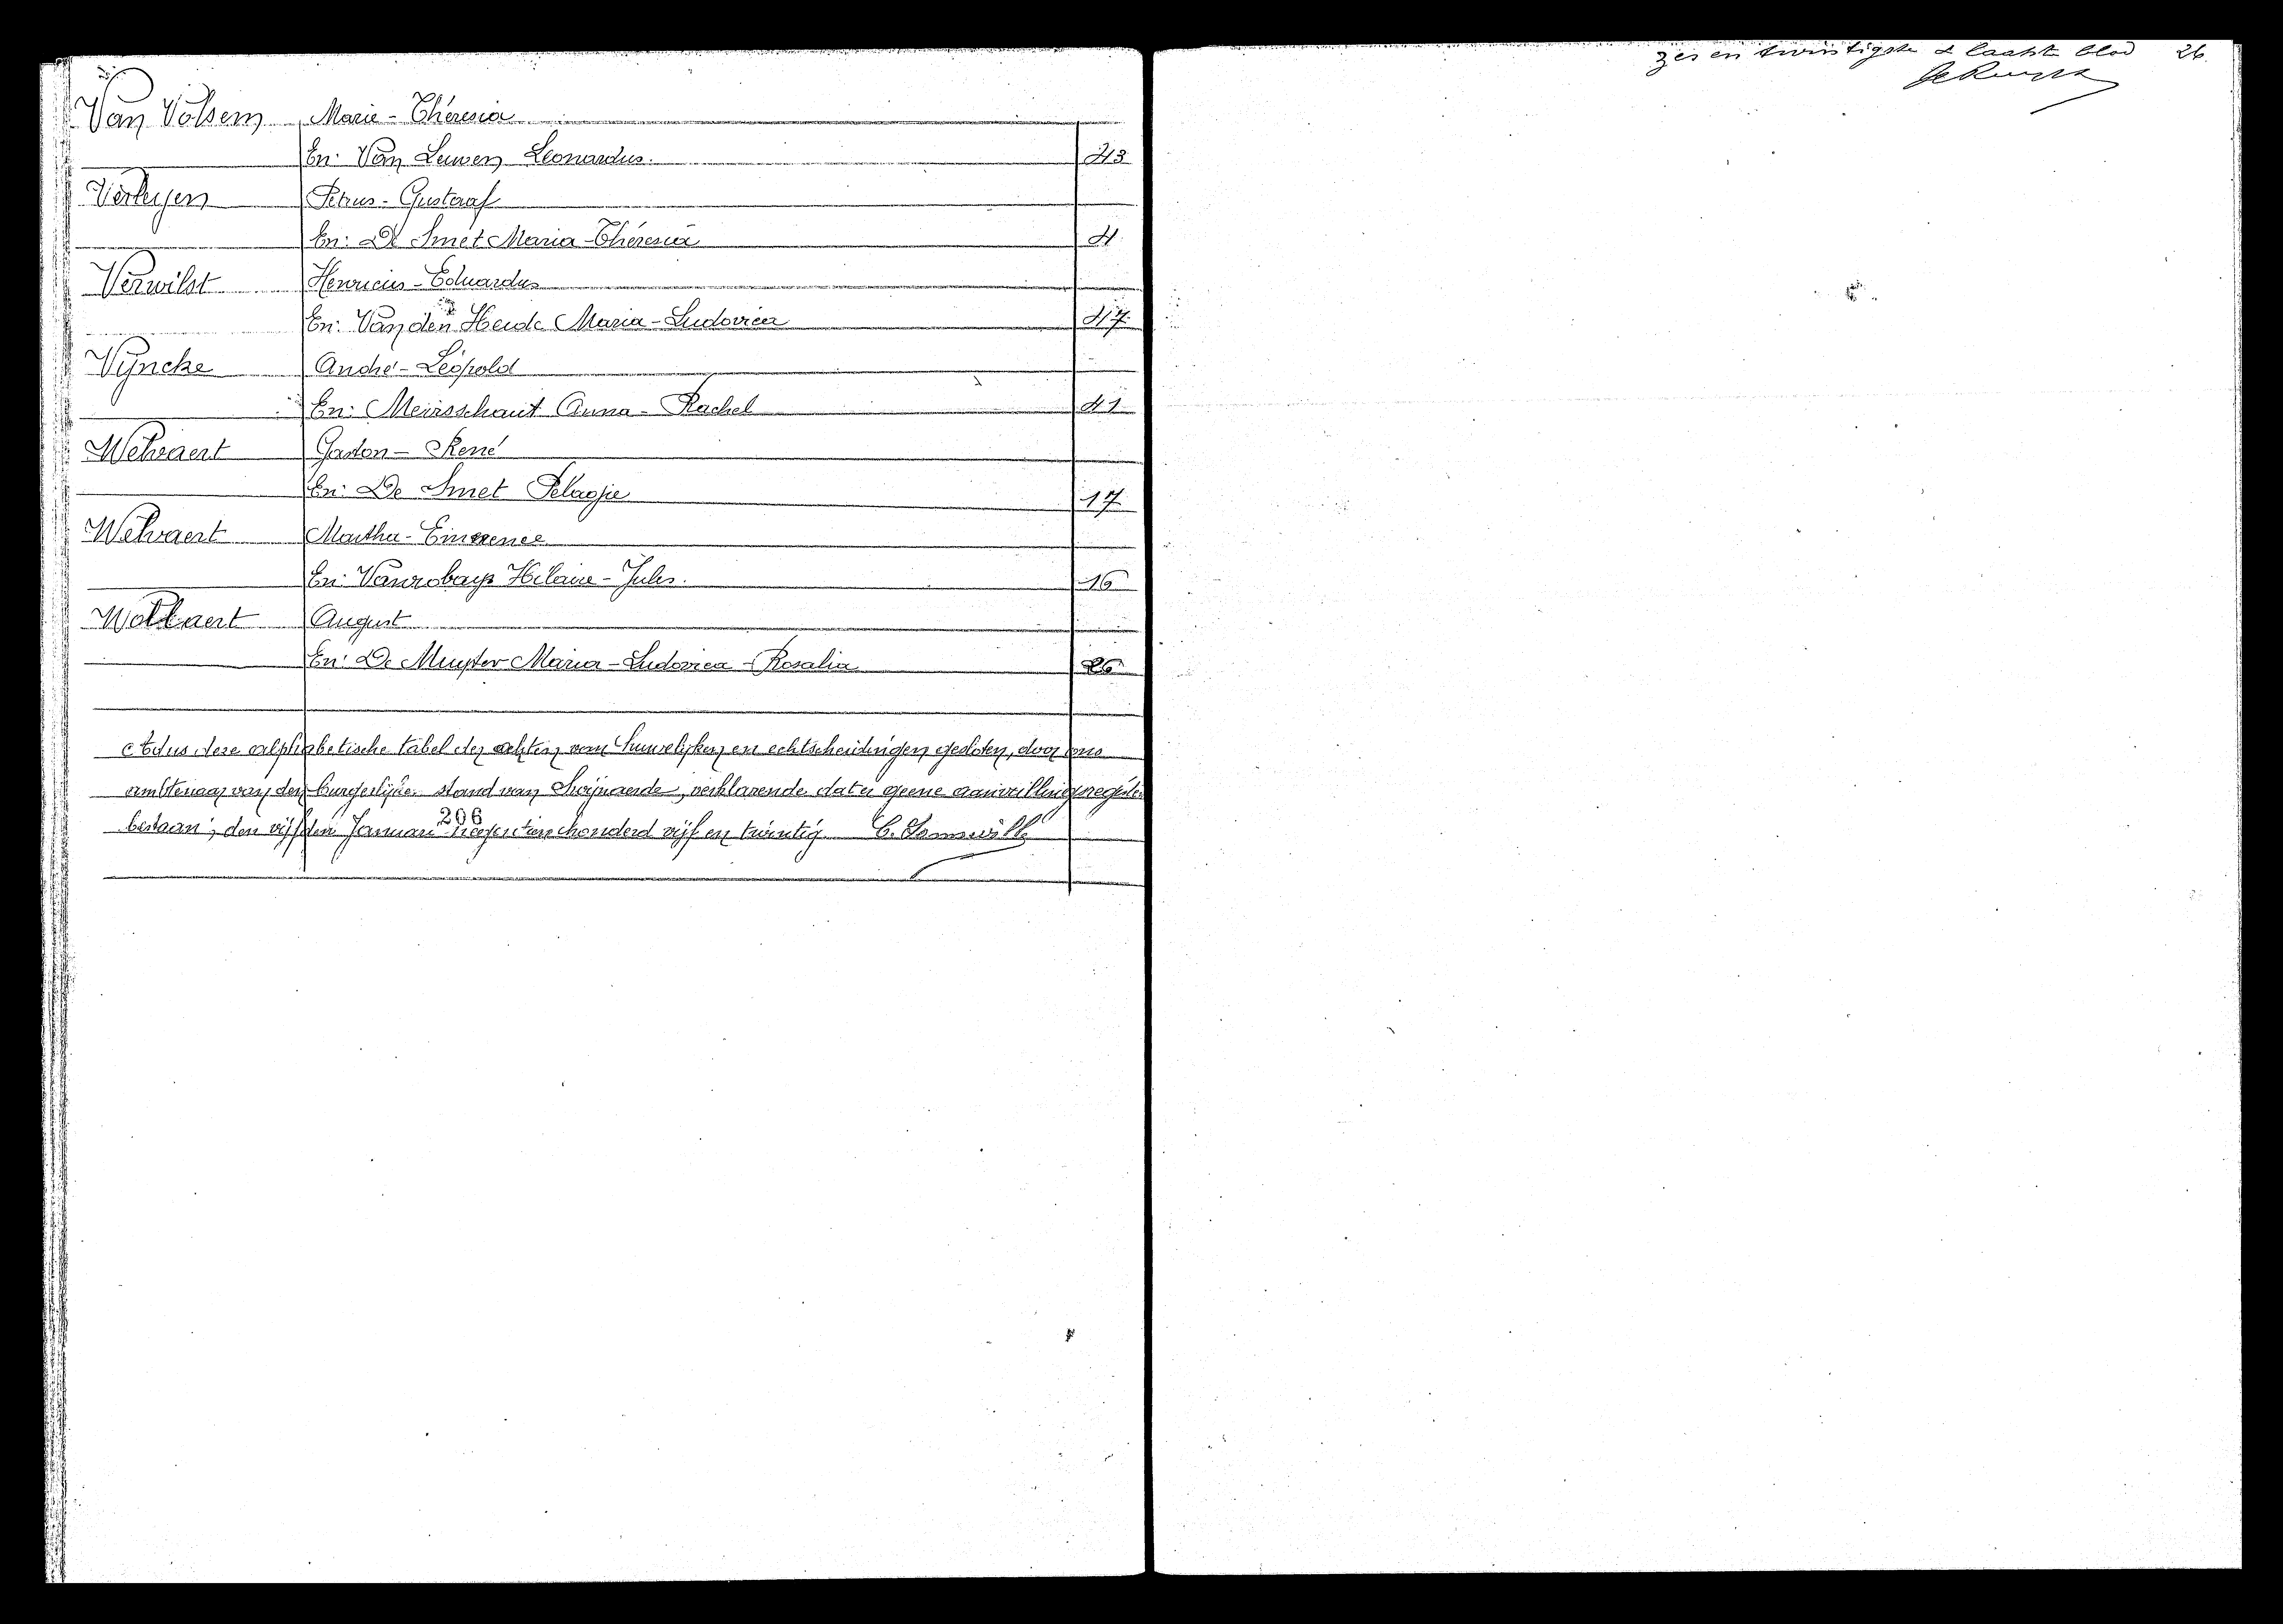 Van Volsem Marie - Thérésia
En: Van Leuven Leonardus. 43
Verleyen Petrus - Gustaaf
En: De Smet Maria - Thérésia 4
Verwilst Henricus - Eduardus
En: Van den Heede Maria - Ludovica 47
Vyncke André - Léopold
En: Meirsschaut Anna - Rachel 41
Welvaert Gaston - René
En: De Smet Pélagie 17
Welvaert Martha - Emerence
En: Vanrobays Hilaire - Jules. 16
Wollaert August
En: De Muyter Maria - Ludovica - Rosalia 26
Aldus deze alphabetische tabel der akten van huwelijken en echtscheidingen gesloten, door ons
ambtenaar van den burgerlijke stand van Swijnaerde, verklarende dat er geene aanvullingsregister
bestaan; den vijfden Januari negentienhonderd vijf en twintig
206
zes en twintigste & laatste blad 26